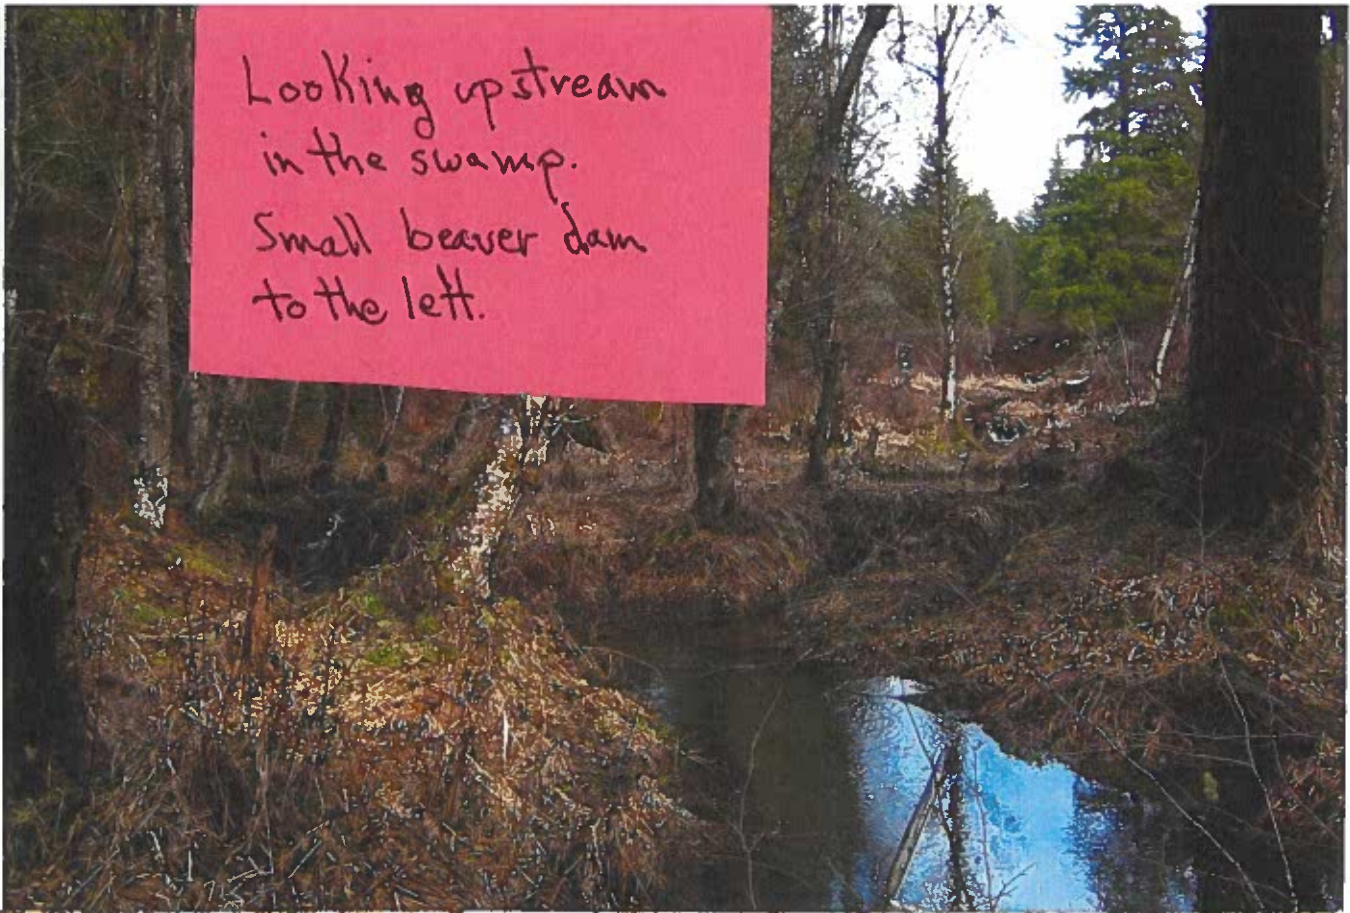 Looking upstream
in the swamp.
Small beaver dam
to the left.